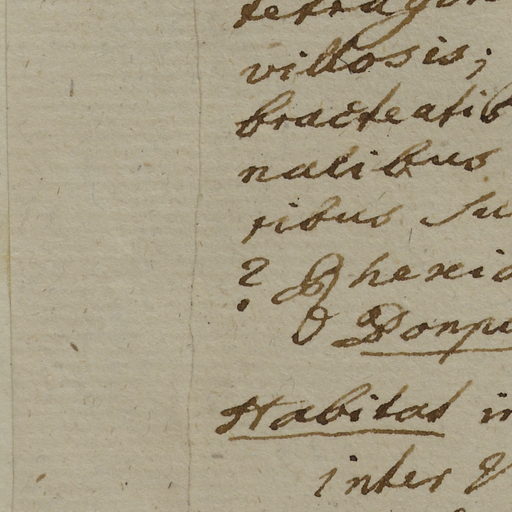 tetragon
villosis;
bracteatib
nalibus
ribus su
? Rhexia
Bonpl
Habitat in
inter